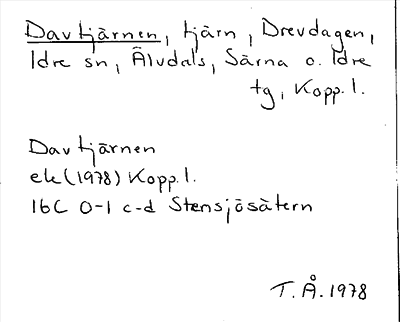 Davtjärnen, tjärn, Drevdagen,
Idre sn, Älvdals, Särna o. Idre
tg, Kopp. l.
Davtjärnen
ek (1978) Kopp. l.
16C 0-1 c-d Stensjösätern
T. Å. 1978